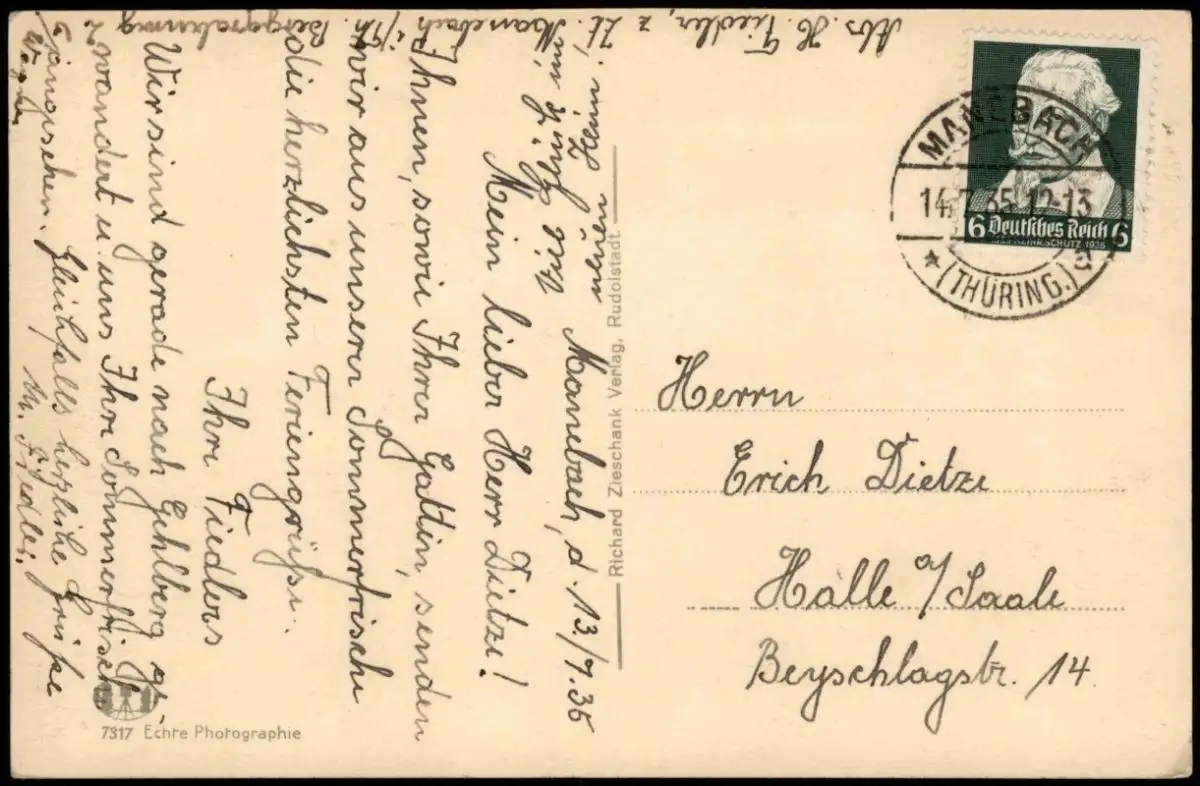 Abs. H. Fiedler, z. Zt. Manebach i/Th.
Berggrabenweg 2
Manebach, d. 13./7.35
Mein lieber Herr Dietze!
Ihnen, sowie Ihrer Gattin, senden
wir aus unserer Sommerfrische
die herzlichsten Feriengrüße.
Ihre Fiedlers
Wir sind gerade nach Gehlberg ge-
wandert u. uns Ihre Sommerfrische
angesehen. Gleichfalls herzliche Grüße
M. Fiedler.
neuen Heim?
Herrn
Erich Dietze
Halle a/Saale
Beyschlagstr. 14.
MANEBACH
14.7.35.12-13
a
* (THÜRING.)
6 Deutsches Reich 6
HEINR. SCHÜTZ 1935
Richard Zieschank Verlag, Rudolstadt
7317 Echte Photographie